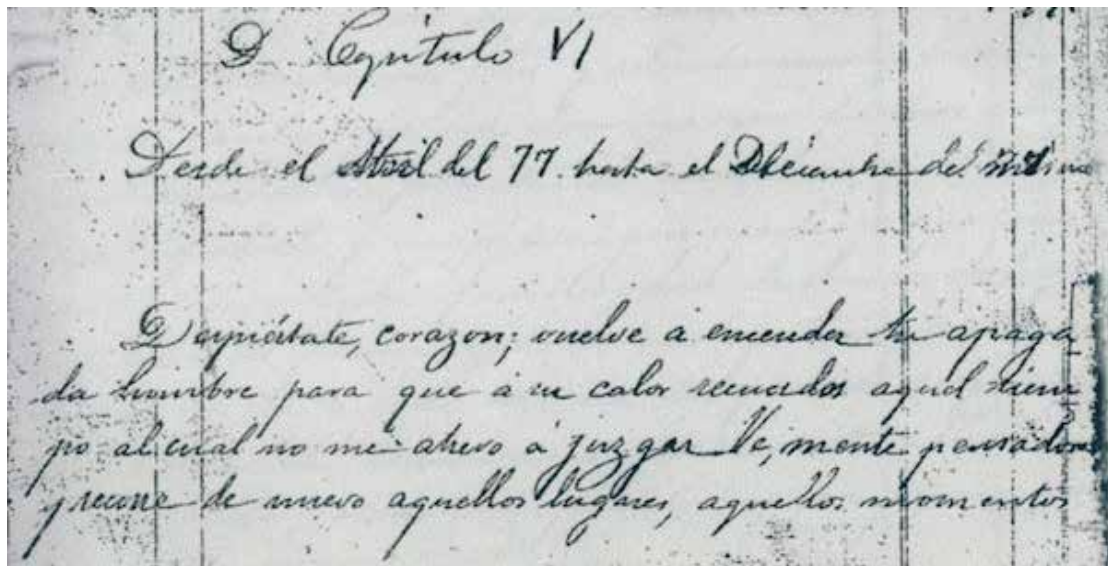 Capítulo VI
Desde el Abril del 77 hasta el Diciembre del mismo
Despiértate, corazon; vuelve á encender tu apaga
da lumbre para que á su calor recuerdes aquel tiem
po al cual no me atrevo á juzgar Ve, mente pensadora
y recorre de nuevo aquellos lugares, aquellos momentos